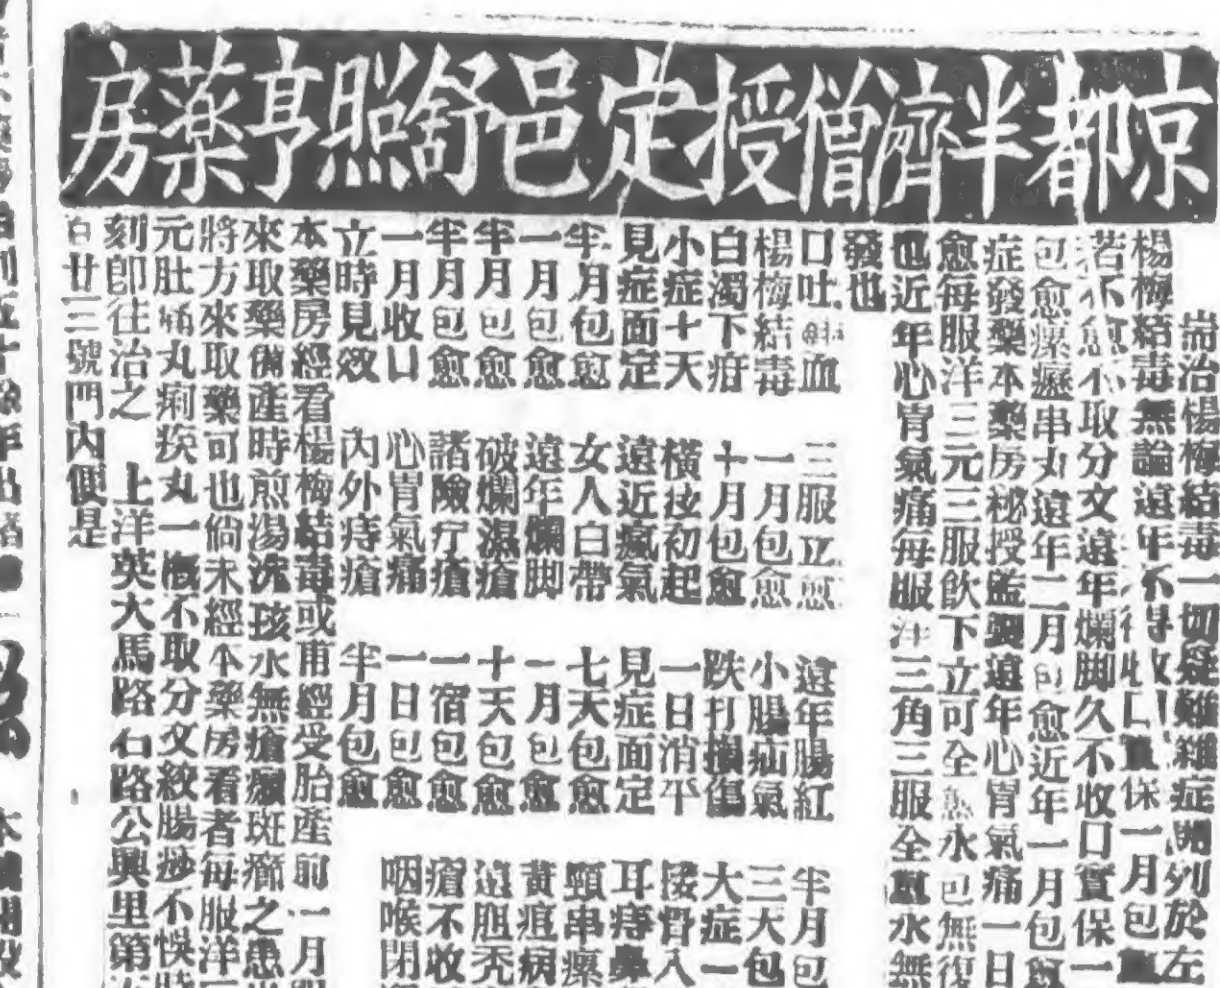 京都半濟僧授定邑舒照亭薬房
耑治楊梅結毒一切疑難雜症開列於左
楊梅結毒無論遠年不得收口實保一月包
若不愈不取分文遠年爛脚久不收口實保一
包愈瘰癧串丸遠年二月包愈近年一月包愈
症發藥本藥房秘授監製遠年心胃氣痛一日
愈每服洋三元三服飲下立可全愈永已無復
也近年心胃氣痛每服洋三角三服全愈永無
發也
口吐鮮血 三服立愈 遠年腸紅 半月包
楊梅結毒 一月包愈 小腸疝氣 三天包
白濁下疳 十月包愈 跌打損傷 大症一
小症十天 橫痃初起 一日消平 接骨入
見症面定 遠近瘋氣 見症面定 耳痔鼻
半月包愈 女人白帶 七天包愈 頸串瘰
一月包愈 遠年爛脚 一月包愈 黃疸病
半月包愈 破爛濕瘡 十天包愈 禿
半月包愈 諸險疔瘡 一宿包愈 瘡不收
一月收口 心胃氣痛 一日包愈 咽喉閉
立時見效 內外痔瘡 半月包愈
本藥房經看楊梅結毒或甫經受胎產前一月
來取藥備產時煎湯洗孩水無瘡癩斑癤之患
將方來取藥可也倘未經本藥房看者每服洋
元肚痛丸痢疾丸一概不取分文絞腸痧不悞時
刻即往治之 上洋英大馬路石路公興里第
白廿三號門內便是